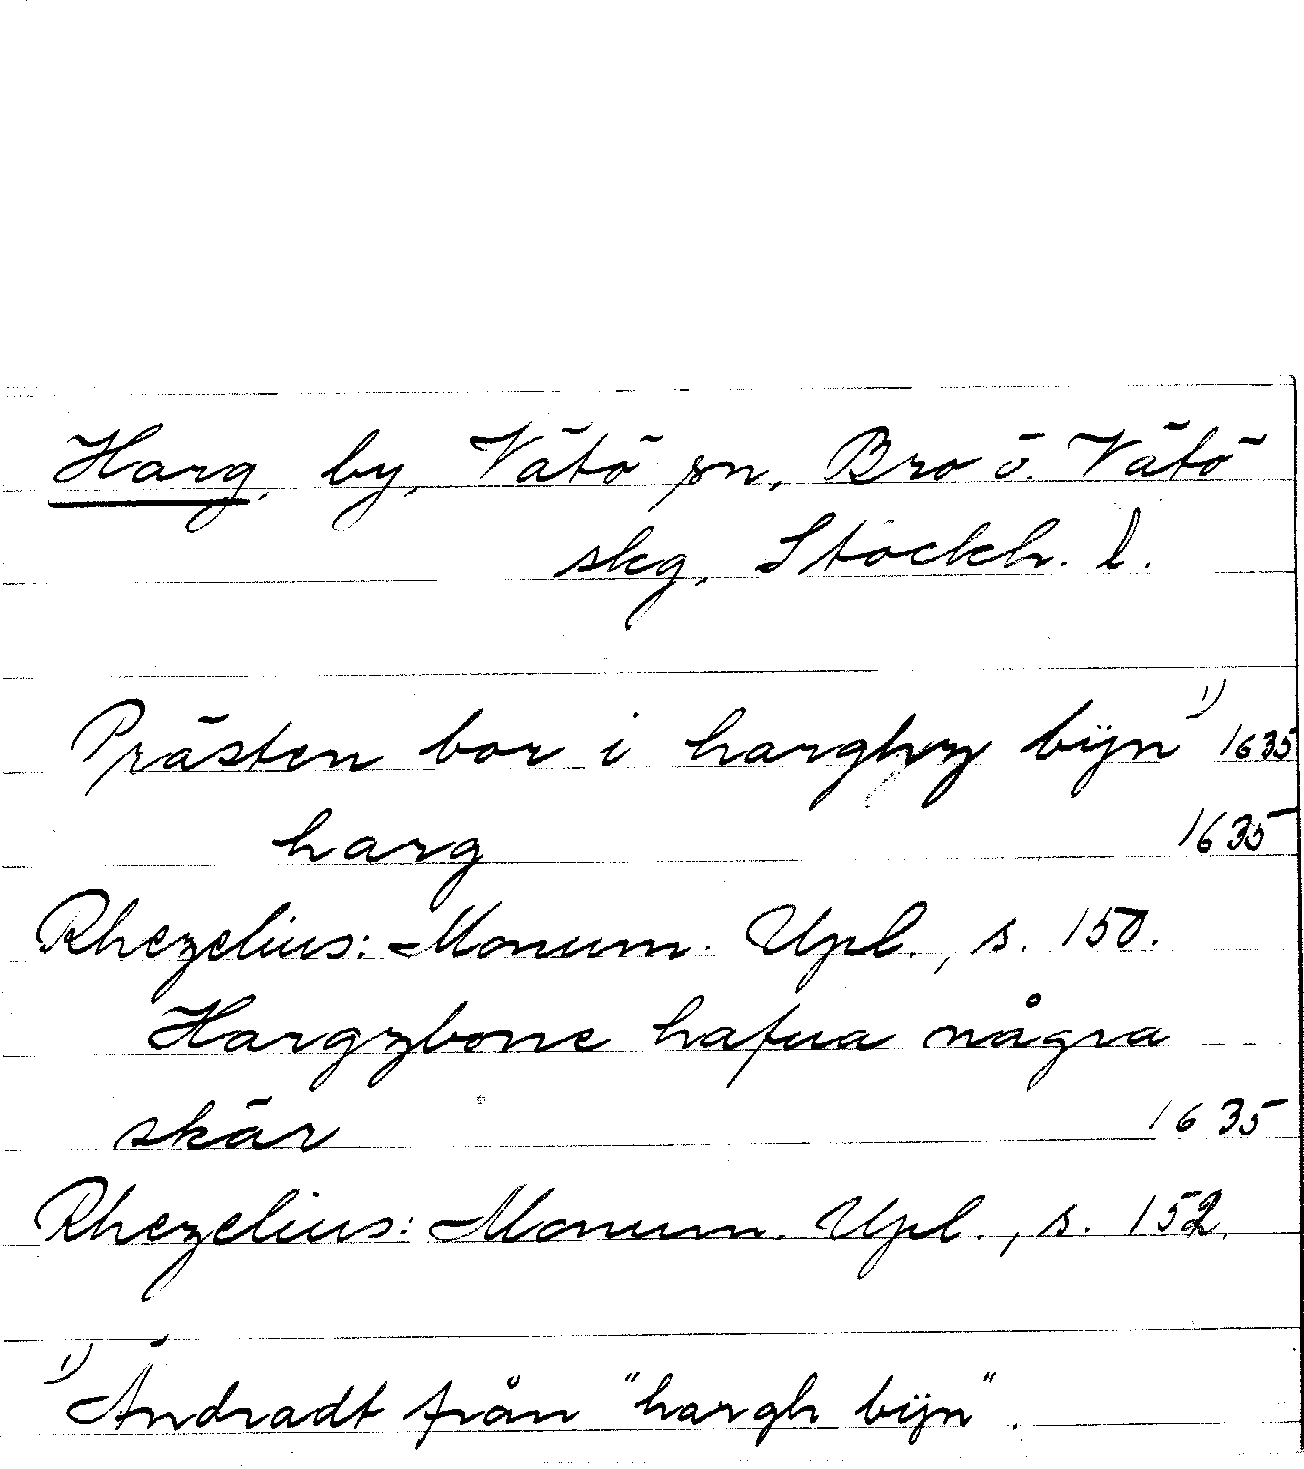 Harg, by, Vätö sn, Bro o. Vätö
skg, Stockh. l.
Prästen bor i harghz bÿn ¹⁾ 1635
harg 1635
Rhezelius: Monum. Upl., s. 150.
Hargzbone hafua några
skär 1635
Rhezelius: Monum. Upl., s. 152.
¹⁾ Ändradt från "hargh bÿn".